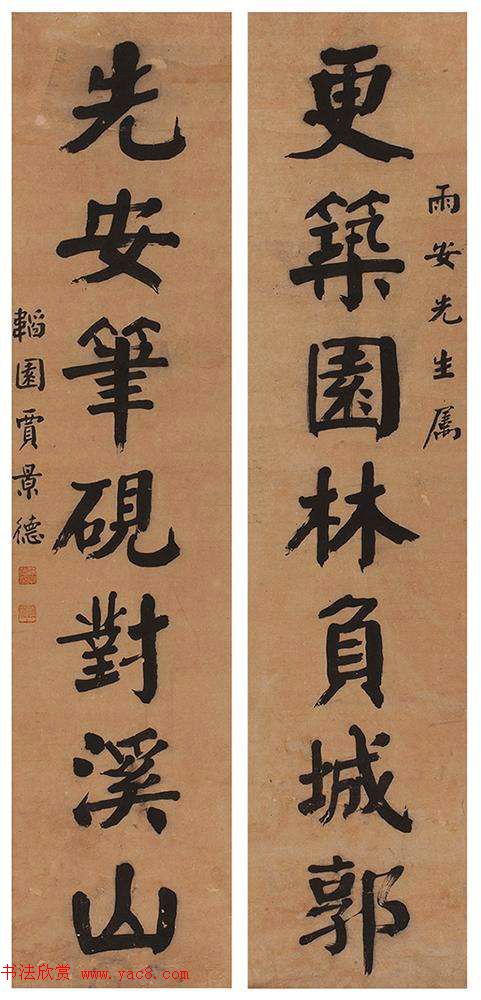 雨安先生属
更築園林負城郭
先安筆硯對溪山
韜園賈景德
书法欣赏 www.yac8.com